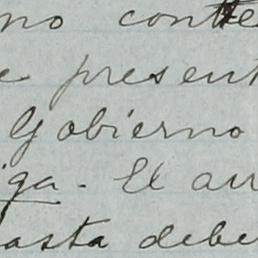 no conte
e present
Gobierno
iga. El arr
asta debe